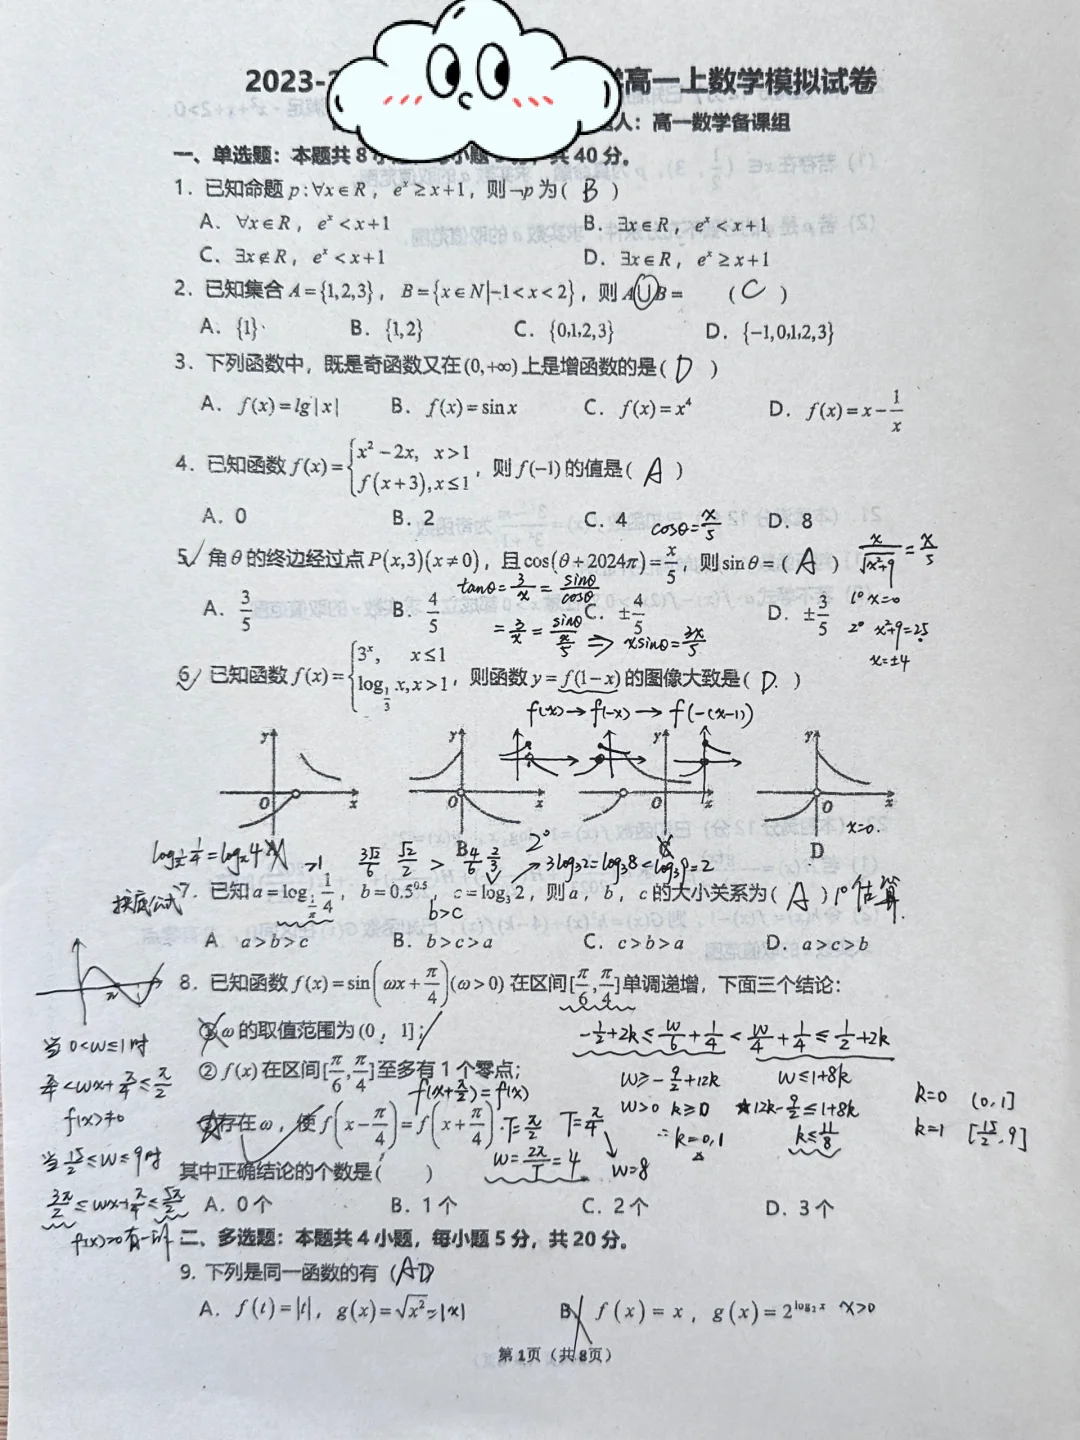 2023-2 高一上数学模拟试卷
人：高一数学备课组
一、单选题：本题共8小 小题 分，共40分。
1．已知命题 p:∀x∈R，eˣ≥x+1，则¬p为( B )
A．∀x∈R，eˣ<x+1 B．∃x∈R，eˣ<x+1
C．∃x∉R，eˣ<x+1 D．∃x∈R，eˣ≥x+1
2．已知集合 A={1,2,3}，B={x∈N|-1<x<2}，则 A∪B= ( C )
A．{1} B．{1,2} C．{0,1,2,3} D．{-1,0,1,2,3}
3．下列函数中，既是奇函数又在(0,+∞)上是增函数的是( D )
A．f(x)=lg|x| B．f(x)=sinx C．f(x)=x⁴ D．f(x)=x-1/x
4．已知函数 f(x)={x²-2x, x>1
f(x+3),x≤1，则 f(-1)的值是( A )
A．0 B．2 C．4 D．8
cosθ=x/5
5．角θ的终边经过点P(x,3)(x≠0)，且cos(θ+2024π)=x/5，则sinθ=( A ) x/√(x²+9)=x/5
tanθ=3/x=sinθ/cosθ
A．3/5 B．4/5 C．±4/5 D．±3/5 1° x=0
=3/x=sinθ/(x/5) ⇒ xsinθ=3x/5 2° x²+9=25
x=±4
6．已知函数 f(x)={3ˣ, x≤1
log_{1/3}x,x>1，则函数 y=f(1-x)的图像大致是( D )
f(x)→f(-x)→f(-(x-1))
y O x y O x y O x y O x
x=0.
B D
>1 3√2/6 √2/2 > 4/6 2/3 2° 3log₃2=log₃8<log₃9=2
换底公式
7．已知 a=log_{1/2}1/4，b=0.5^{0.5}，c=log₃2，则a，b，c的大小关系为( A ) 1°估算.
b>c
A．a>b>c B．b>c>a C．c>b>a D．a>c>b
8．已知函数 f(x)=sin(ωx+π/4)(ω>0)在区间[π/6,π/4]单调递增，下面三个结论：
①ω的取值范围为(0，1]；
-1/2+2k≤w/6+1/4<w/4+1/4≤1/2+2k
当0<w≤1时
②f(x)在区间[π/6,π/4]至多有1个零点；
w≥-9/2+12k w≤1+8k
π/4<wx+π/4≤π/2
f(x+π/2)=f(x)
w>0 k≥0 ★12k-9/2≤1+8k k=0 (0,1]
f(x)≠0
③存在ω，使 f(x-π/4)=f(x+π/4). T=π/2 T=π/4 ∴k=0,1 k≤11/8 k=1 [15/2,9]
w=2π/T=4 w=8
当15/2≤w≤9时
其中正确结论的个数是( )
3π/2≤wx+π/4≤5π/2
A．0个 B．1个 C．2个 D．3个
二、多选题：本题共4小题，每小题5分，共20分。
9．下列是同一函数的有（AD）
A．f(t)=|t|，g(x)=√x²=|x| B．f(x)=x，g(x)=2^{log₂x} x>0
第1页（共8页）